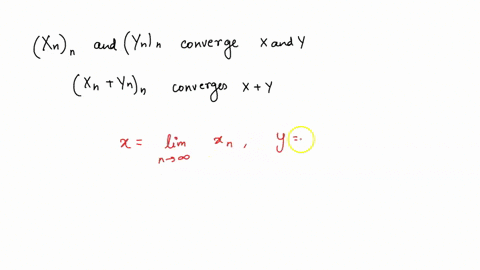 (Xn)n and (Yn)n converge X and Y
(Xn + Yn)n converges X + Y
x = lim n→∞ xn, y =